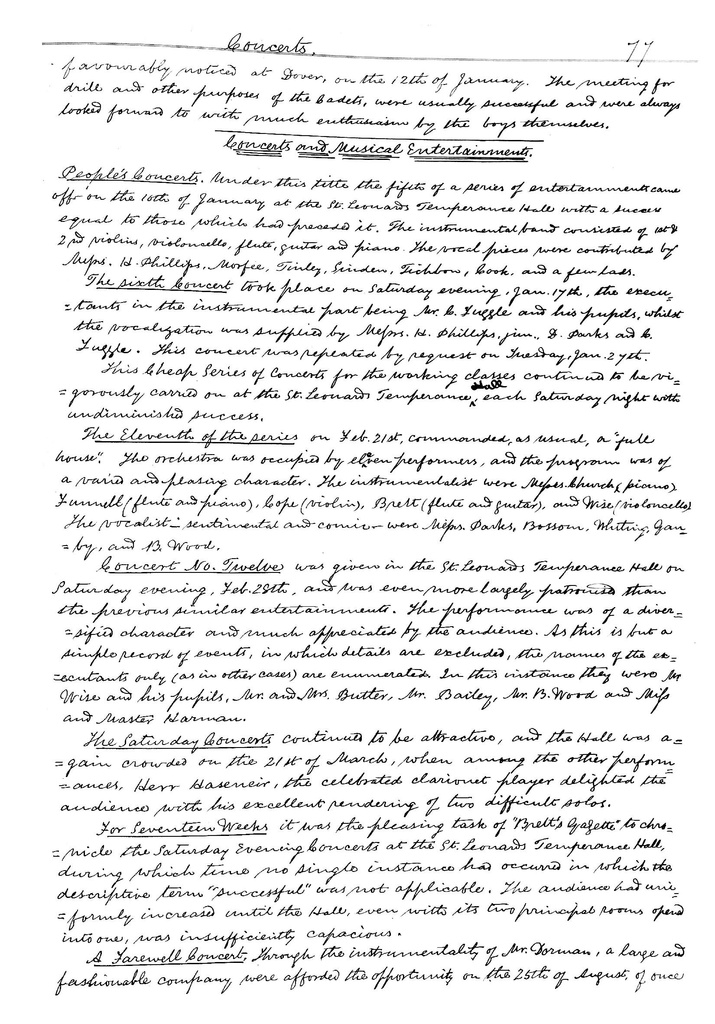 Concerts. 77
favourably noticed at Dover, on the 12th of January. The meeting for
drill and other purposes of the Cadets, were usually successful and were always
looked forward to with much enthusiasm by the boys themselves.
Concerts and Musical Entertainments.
People's Concerts. Under this title the fifth of a series of entertainments came
off on the 10th of January at the St. Leonards Temperance Hall with a success
equal to those which had preceded it. The instrumental band consisted of 1st &
2nd violins, violoncello, flute, guitar and piano. The vocal pieces were contributed by
Messrs. H. Phillips, Morfee, Tinley, Linden, Tichbon, Cook, and a few Lads.
The sixth Concert took place on Saturday evening, Jan. 17th, the execu-
=tants in the instrumental part being Mr. C. Fuggle and his pupils, whilst
the vocalization was supplied by Messrs. H. Phillips, jun., D. Parks and C.
Fuggle. This concert was repeated by request on Tuesday, Jan. 27th.
This Cheap Series of Concerts for the working classes continued to be vi-
=gorously carried on at the St. Leonards Temperance Hall each Saturday night with
undiminished success.
The Eleventh of the series on Feb. 21st, commanded, as usual, a "full
house". The orchestra was occupied by eleven performers, and the program was of
a varied and pleasing character. The instrumentalist were Messrs. Church (piano)
Funnell (flute and piano), Cope (violin), Brett (flute and guitar), and Wise (violoncello)
The vocalist – sentimental and comic – were Messrs. Parks, Bossom, Whiting, Gan-
=by, and B. Wood.
Concert No. Twelve was given in the St. Leonards Temperance Hall on
Saturday evening, Feb. 28th, and was even more largely patronised than
the previous similar entertainments. The performance was of a diver-
=sified character and much appreciated by the audience. As this is but a
simple record of events, in which details are excluded, the names of the ex-
=ecutants only (as in other cases) are enumerated. In this instance they were Mr
Wise and his pupils, Mr. and Mrs. Butter, Mr. Bailey, Mr. B. Wood and Miss
and Master Harman.
The Saturday Concerts continued to be attractive, and the Hall was a=
=gain crowded on the 21st of March, when among the other perform
=ances, Herr Haseneir, the celebrated clarionet player delighted the
audience with his excellent rendering of two difficult solos.
For Seventeen Weeks it was the pleasing task of "Brett's Gazette" to chro-
=nicle the Saturday Evening Concerts at the St. Leonards Temperance Hall,
during which time no single instance had occurred in which the
descriptive term "successful" was not applicable. The audience had uni-
=formly increased until the Hall, even with its two principal rooms opened
into one, was insufficiently capacious.
A Farewell Concert. Through the instrumentality of Mr. Dorman, a large and
fashionable company were afforded the opportunity on the 25th of August, of once